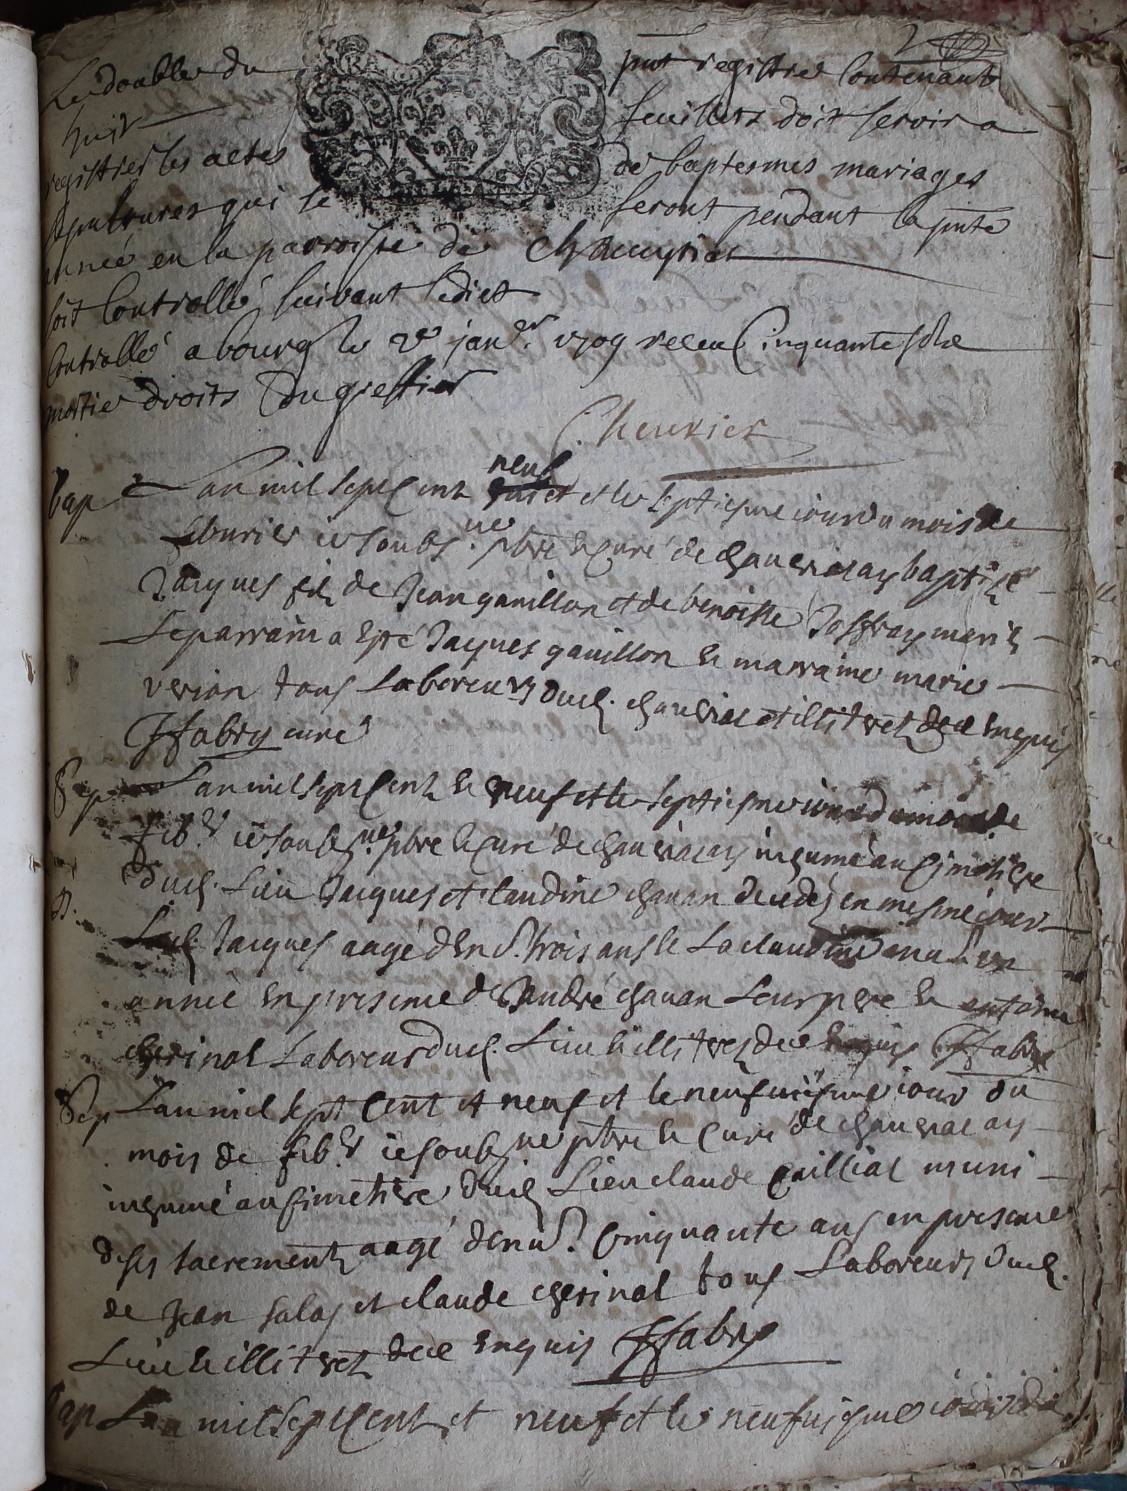 Le double du pnt registre contenant
huit feuillets doit servir a
registrer les actes de baptesmes mariages
sepultures qui se feront pendant la pnte
année en la parroisse de Chaveyriat
soit controllé suivant ledict
Controllé a bourg le 2e janvr. 1709 receu Cinquante sols
moitié droits du greffier
Chevrier
bap Lan mil sept Cent neuf et le septiesme iour du mois de
feburier ie soubs.né pbre & Curé de chaveriac ay baptizé
Jacques filz de Jean gavillon et de benoiste Joffray mariez
Le parrain a esté Jacques gavillon & marraine marie
verion tous Laboreurs dud. chaveriac et illitrez de ce enquis
JFabry curé
Sep Lan mil sept Cent & neuf et le septiesme iour du mois de
feb.er ie soubs.né pbre & Curé de chaveriac ay inhumé au Cimetiere
dud. Lieu Jacques et Claudine chanan decedez en mesme iour
Led. Jacques aagé den.d. trois ans & La claudine en.d. un
année en presence de André chanan Leur pere &
cherinal Laboreurs dud. Lieu & illitrez de ce enquis JFabry
Sep Lan mil sept Cent et neuf et le neufuiesme iour du
mois de feb.er ie soubsné pbre & Curé de chaveriac ay
inhumé au Cimetiere dud. Lieu claude cailliat muni
de ses sacrements aagé denv.d. Cinquante ans en presence
de Jean salas et claude cherinal tous Laboreurs dud.
Lieu & illitrez de ce enquis JFabry
bap Lan mil sept Cent et neuf et le neufuiesme iour